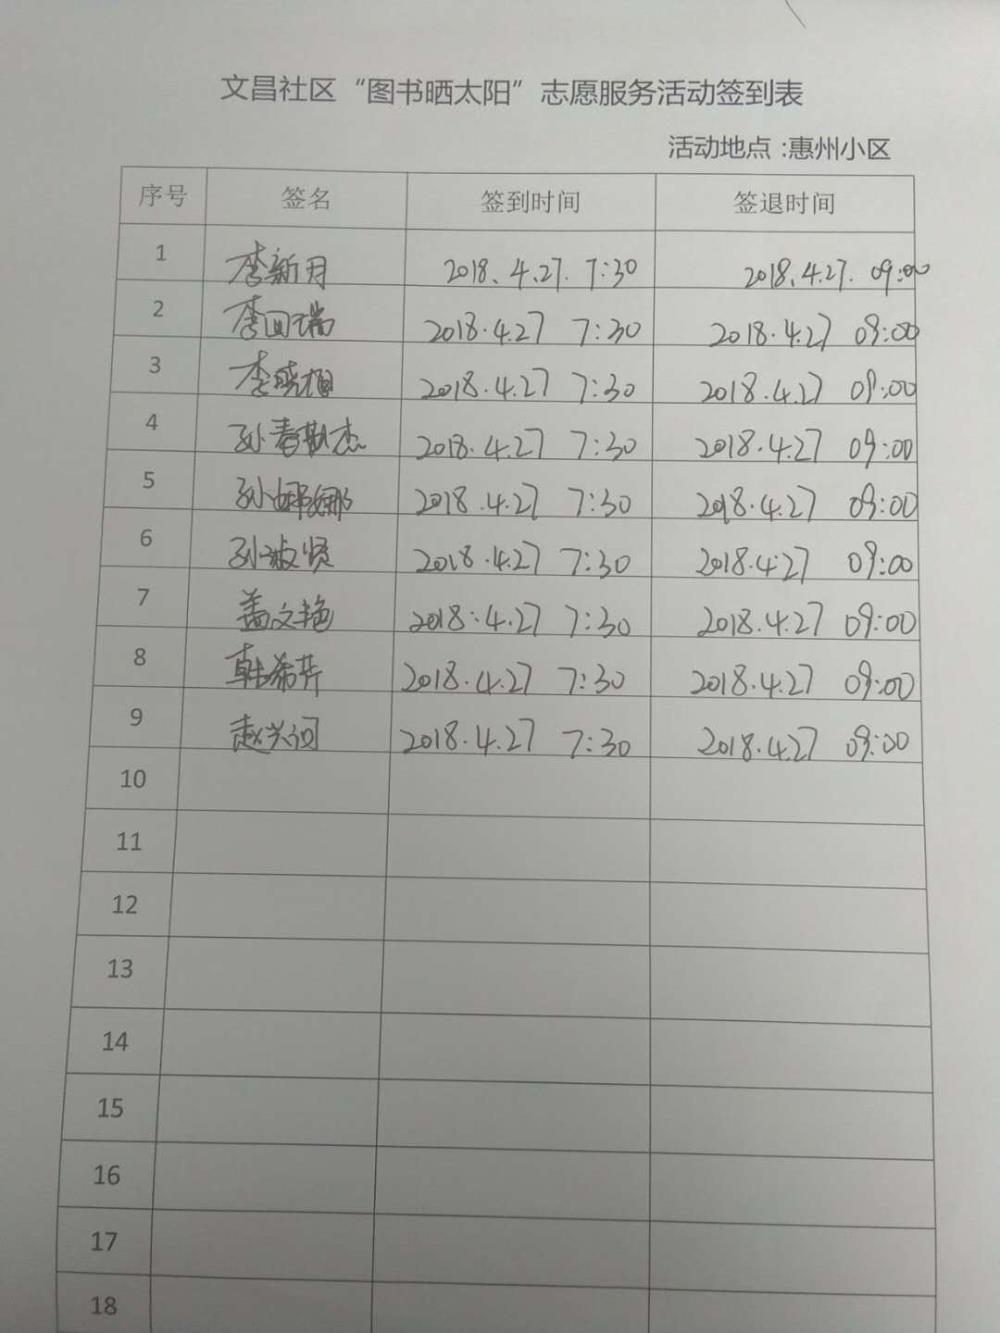 文昌社区“图书晒太阳”志愿服务活动签到表
活动地点:惠州小区
序号 签名 签到时间 签退时间
1 李新月 2018.4.27. 7:30 2018.4.27. 09:00
2 李回瑞 2018.4.27 7:30 2018.4.27 09:00
3 李晓旭 2018.4.27 7:30 2018.4.27 09:00
4 孙春杰 2018.4.27 7:30 2018.4.27 09:00
5 孙娜娜 2018.4.27 7:30 2018.4.27 09:00
6 孙淑贤 2018.4.27 7:30 2018.4.27 09:00
7 盖文艳 2018.4.27 7:30 2018.4.27 09:00
8 韩希芹 2018.4.27 7:30 2018.4.27 09:00
9 赵兴河 2018.4.27 7:30 2018.4.27 09:00
10
11
12
13
14
15
16
17
18